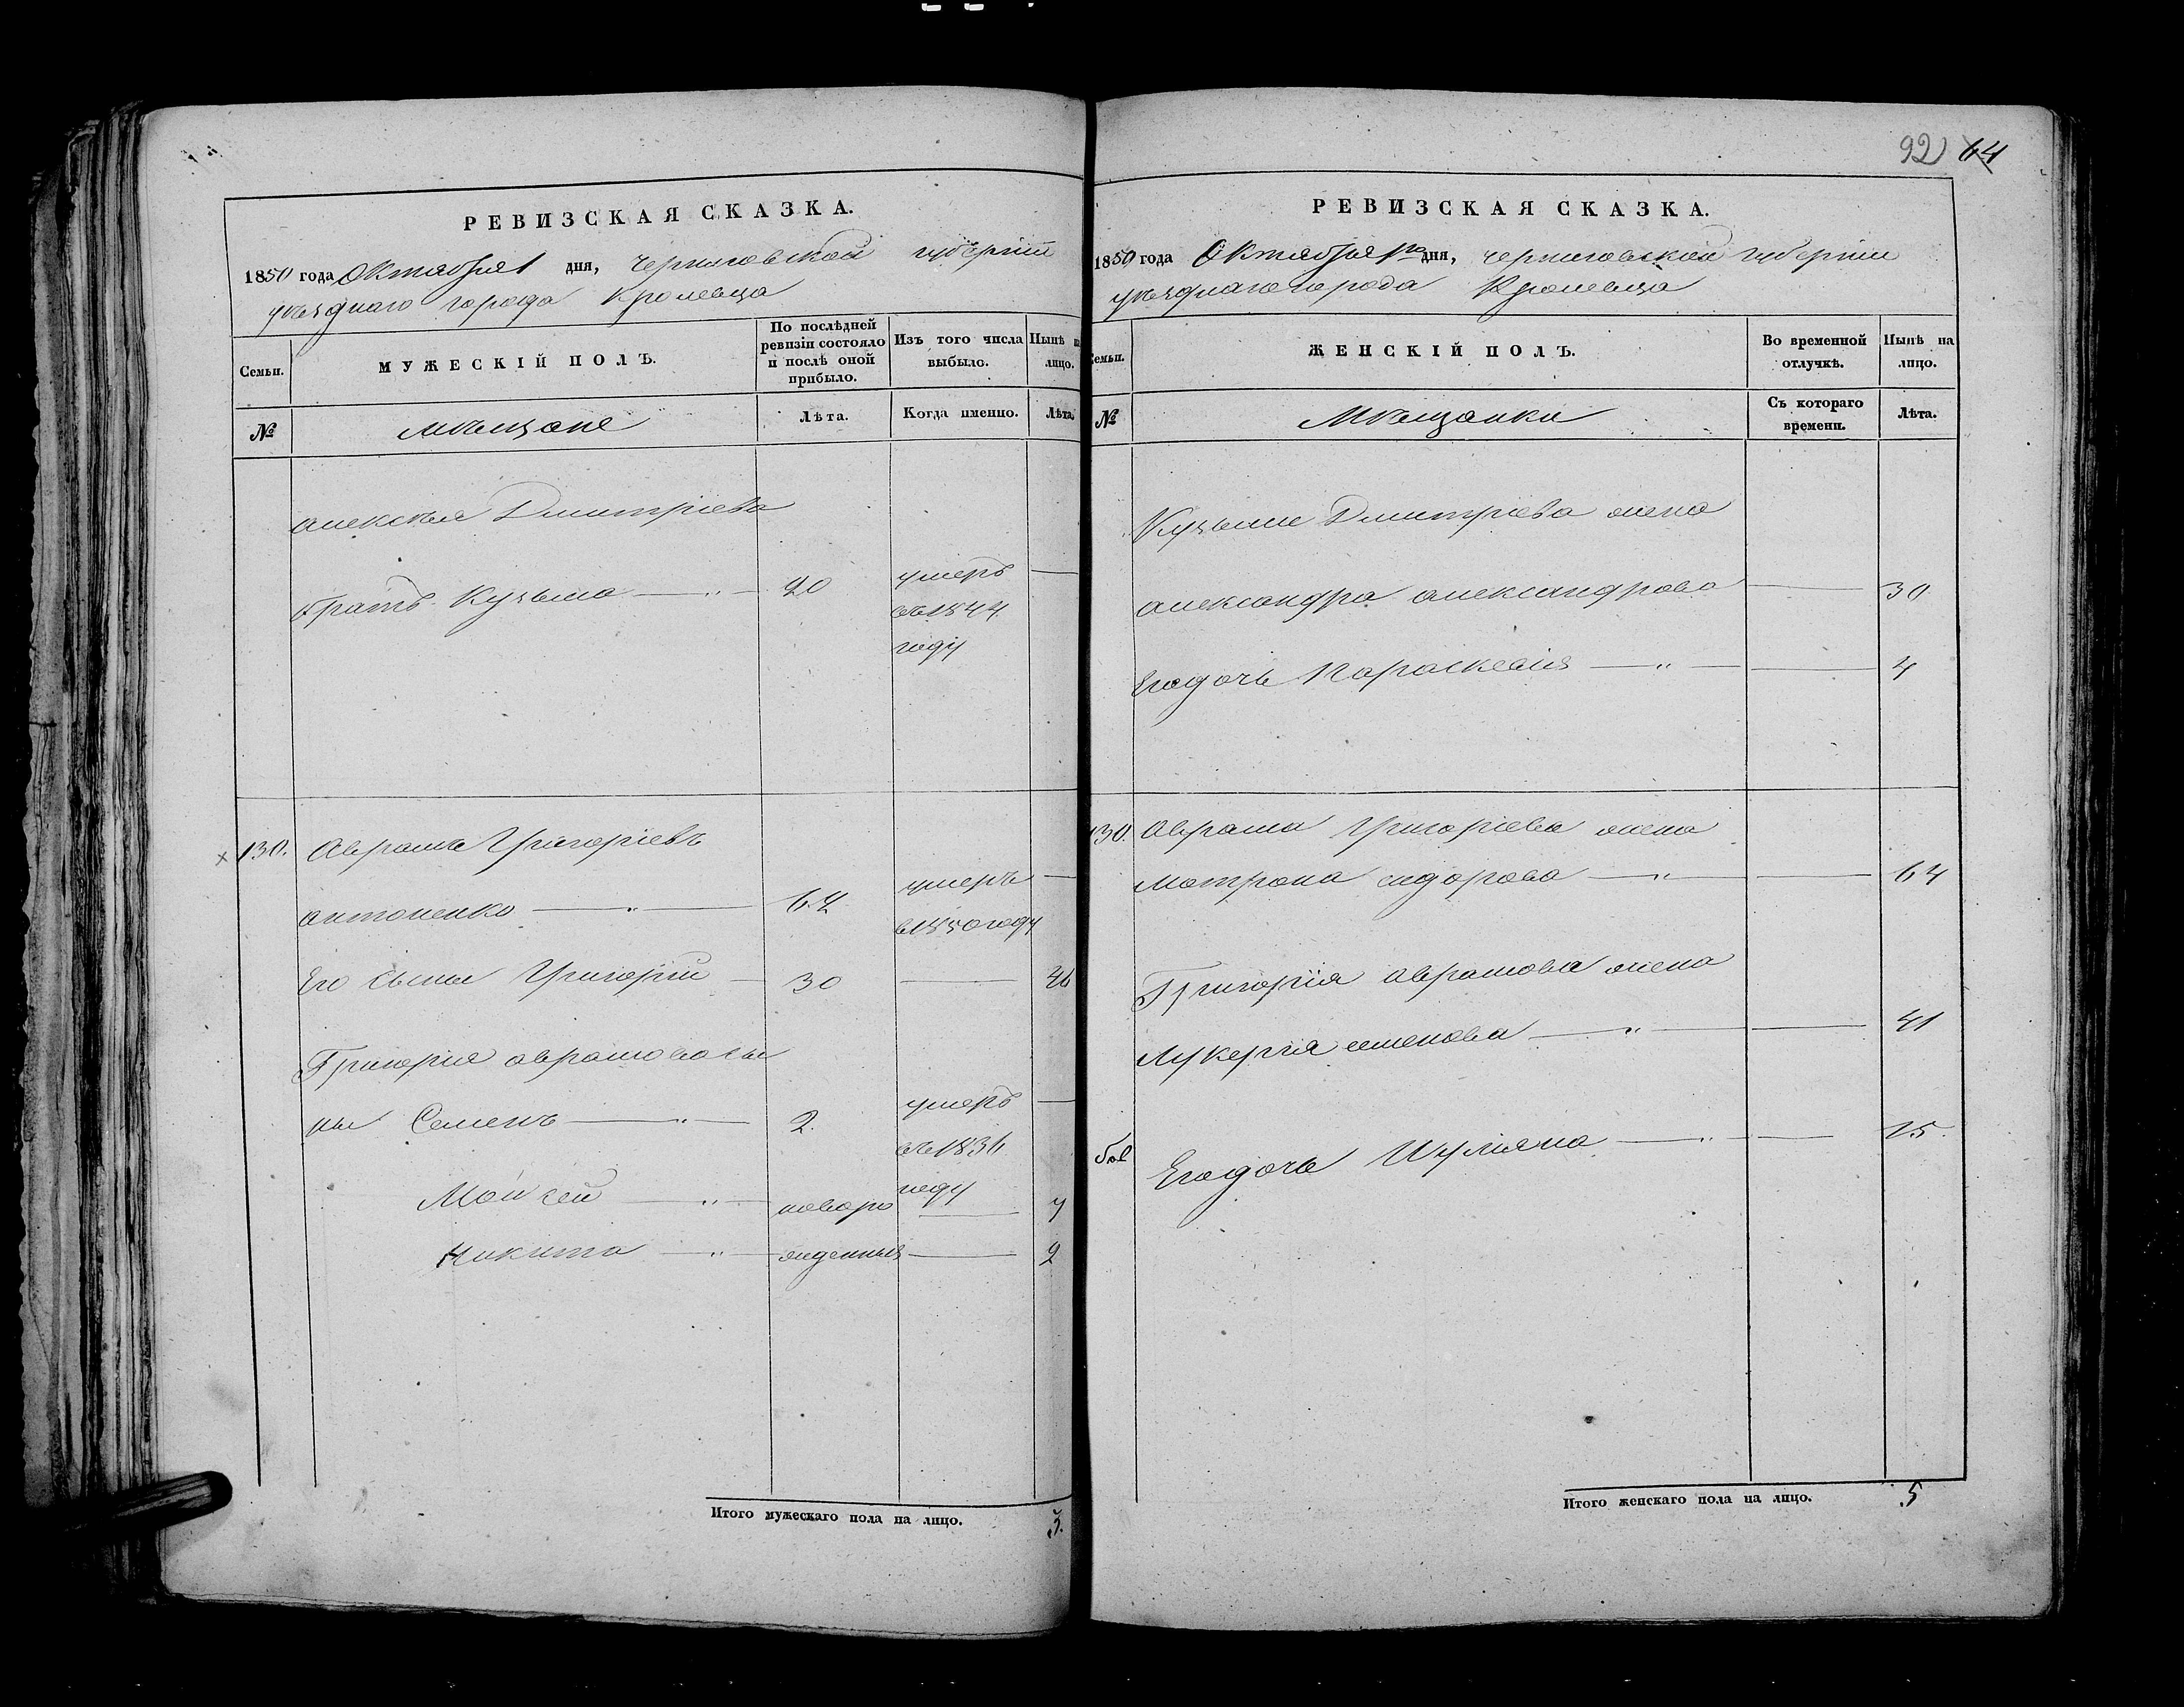 92 64
РЕВИЗСКАЯ СКАЗКА.
1850 года Октября 1 дня, Черниговской губерніи
уѣзднаго города Кролевца
Семьи.
МУЖЕСКІЙ ПОЛЪ.
По послѣдней ревизіи состояло и послѣ оной прибыло.
Изъ того числа выбыло.
Нынѣ на лицо.
№
Мѣщане
Лѣта.
Когда именно.
Лѣта.
алексѣя Дмитріева
братъ Кузьма — " — 20 умеръ —
въ 1844
году
130. Аврамъ Григоріевъ
антоненко — " — умеръ —
в 1850 году
Его сыны Григорій — 30 — 46
Григорія аврамова сы
ны Семенъ — " — 2. умеръ —
въ 1836
году
Мойсей — " — новоро — 7
Никита — " — жденныя — 2
Итого мужескаго пола на лицо. 3.
РЕВИЗСКАЯ СКАЗКА.
1850 года Октября 1го дня, Черниговской губерніи
уѣзднаго города Кролевца
Семьи.
ЖЕНСКІЙ ПОЛЪ.
Во временной отлучкѣ.
Нынѣ на лицо.
№
Мѣщанки
Съ котораго времени.
Лѣта.
Кузьмы Дмитріева жена
александра александрова — 30
Его дочь Параскевія — " — 4
130. Аврама Григоріева жена
Матрона сидорова — " — 64
Григорія аврамова жена
Лукерія семенова — " — 41
Его дочь Иулияна — " — 15.
Итого женскаго пола на лицо. 5